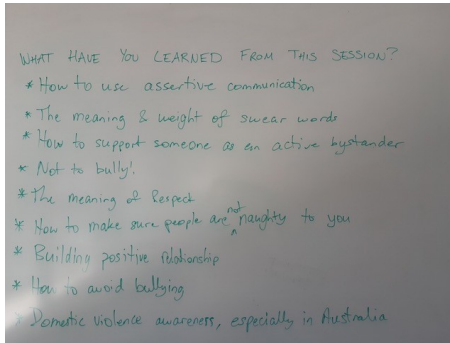 WHAT HAVE YOU LEARNED FROM THIS SESSION?
* How to use assertive communication
* The meaning & weight of swear words
* How to support someone as an active bystander
* Not to bully!
* The meaning of Respect
* How to make sure people are not naughty to you
* Building positive relationship
* How to avoid bullying
* Domestic violence awareness, especially in Australia